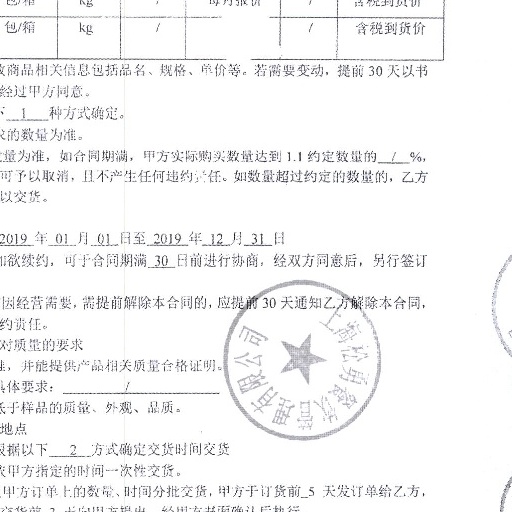 包/箱 kg / 每月报价 / 含税到货价
包/箱 kg / / 含税到货价
商品相关信息包括品名、规格、单价等。若需要变动，提前 30 天以书
经过甲方同意。
下 1 种方式确定。
求的数量为准。
量为准，如合同期满，甲方实际购买数量达到 1.1 约定数量的 / %，
可予以取消，且不产生任何违约责任。如数量超过约定的数量的，乙方
以交货。
2019 年 01 月 01 日至 2019 年 12 月 31 日
如欲续约，可于合同期满 30 日前进行协商，经双方同意后，另行签订
因经营需要，需提前解除本合同的，应提前 30 天通知乙方解除本合同，
约责任。
对质量的要求
准，并能提供产品相关质量合格证明。
具体要求： /
低于样品的质量、外观、品质。
地点
根据以下 2 方式确定交货时间交货
按甲方指定的时间一次性交货。
甲方订单上的数量、时间分批交货，甲方于订货前 5 天发订单给乙方，
上海 管理有限公司